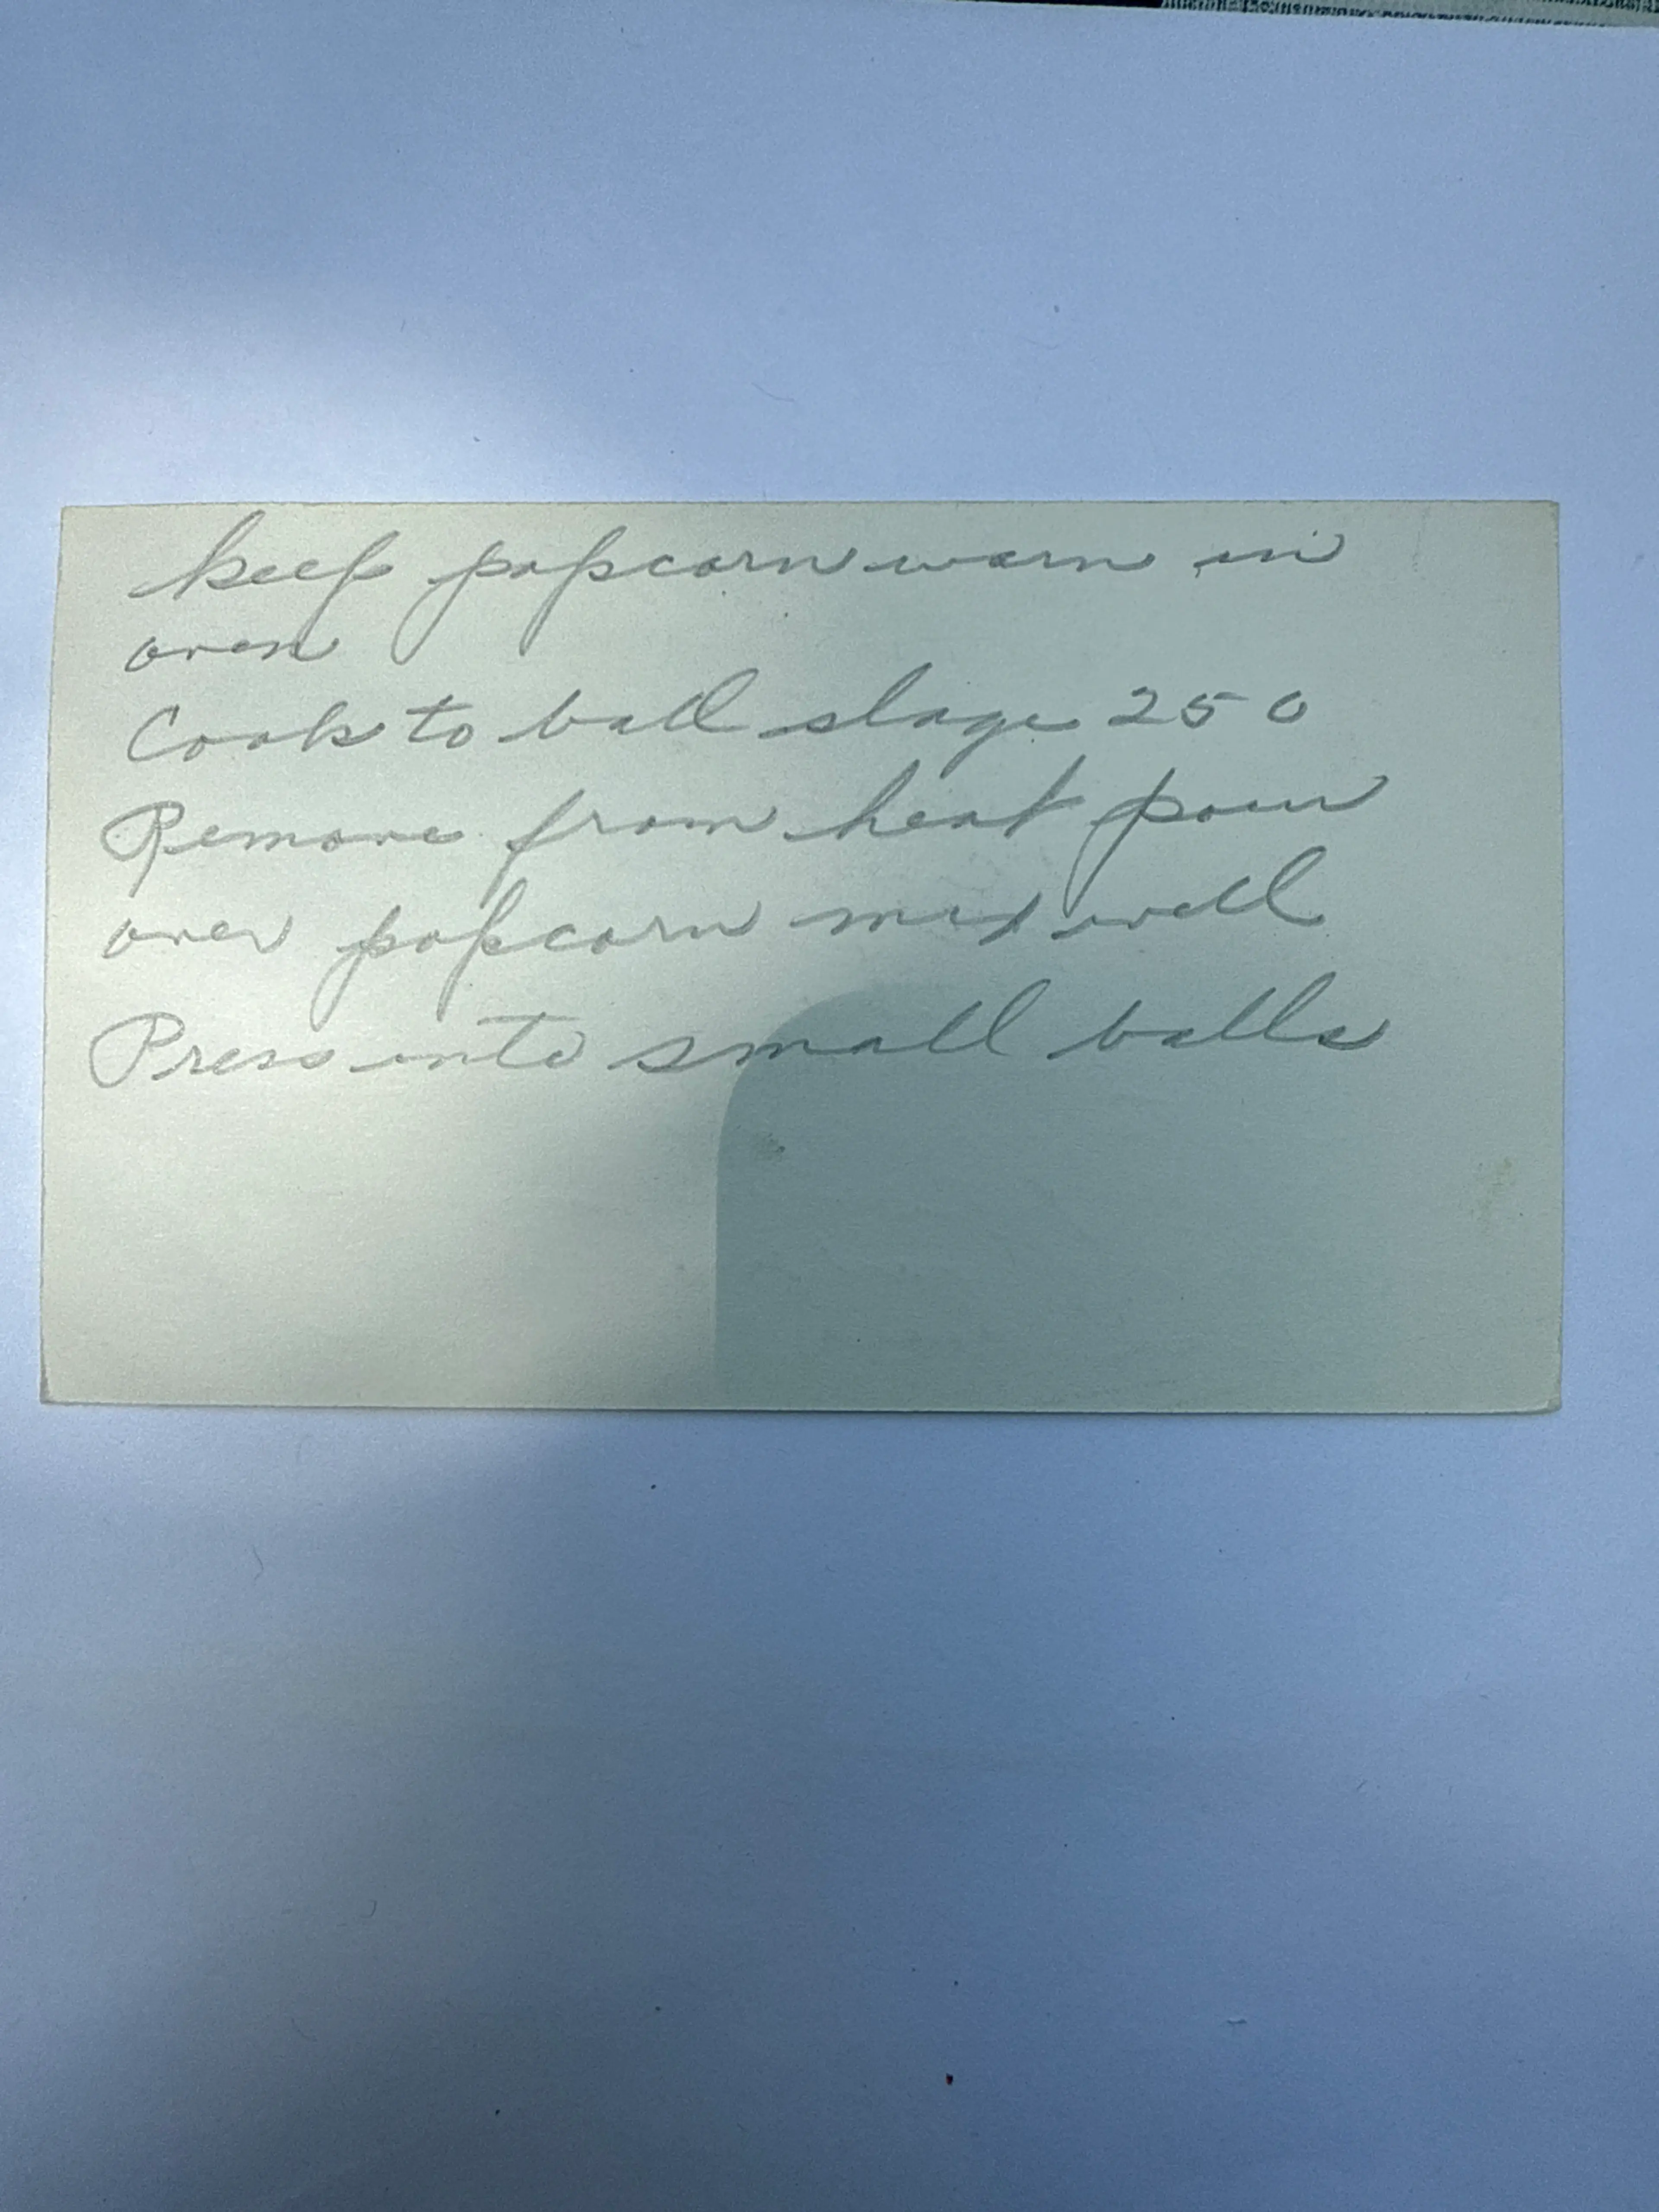 keep popcorn warm in
oven
Cook to ball stage 250
Remove from heat pour
over popcorn mix well
Press into small balls